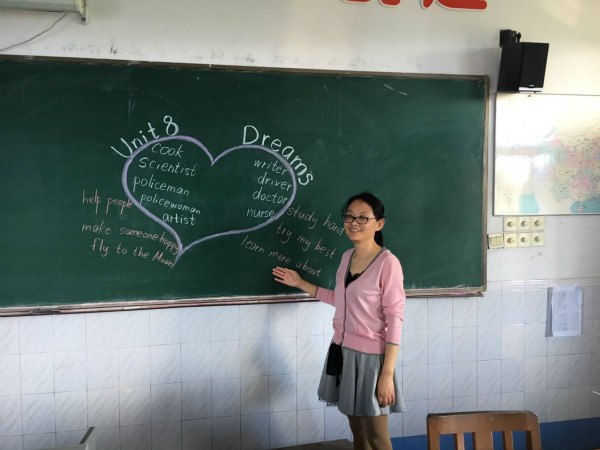 Unit 8 Dreams
cook
scientist
policeman
policewoman
artist
writer
driver
doctor
nurse
help people
make someone happy
fly to the Moon
study hard
try my best
learn more about